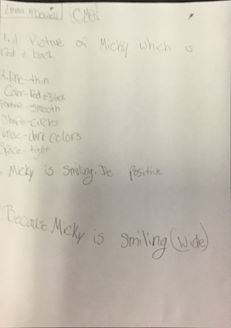 Emma McDowell CM82
1. A Picture of Micky which is
red & black
2. Line-thin
Color-Red & Black
Texture-smooth
Shape-circles
Value-dark colors
Space-tight
Micky is smiling. Its positive
Because Micky is smiling (wide)